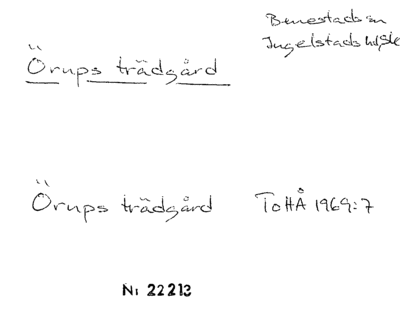 Benestads sn
Ingelstads hd, Sk
Örups trädgård
Örups trädgård ToHÅ 1969:7
Nr 22213